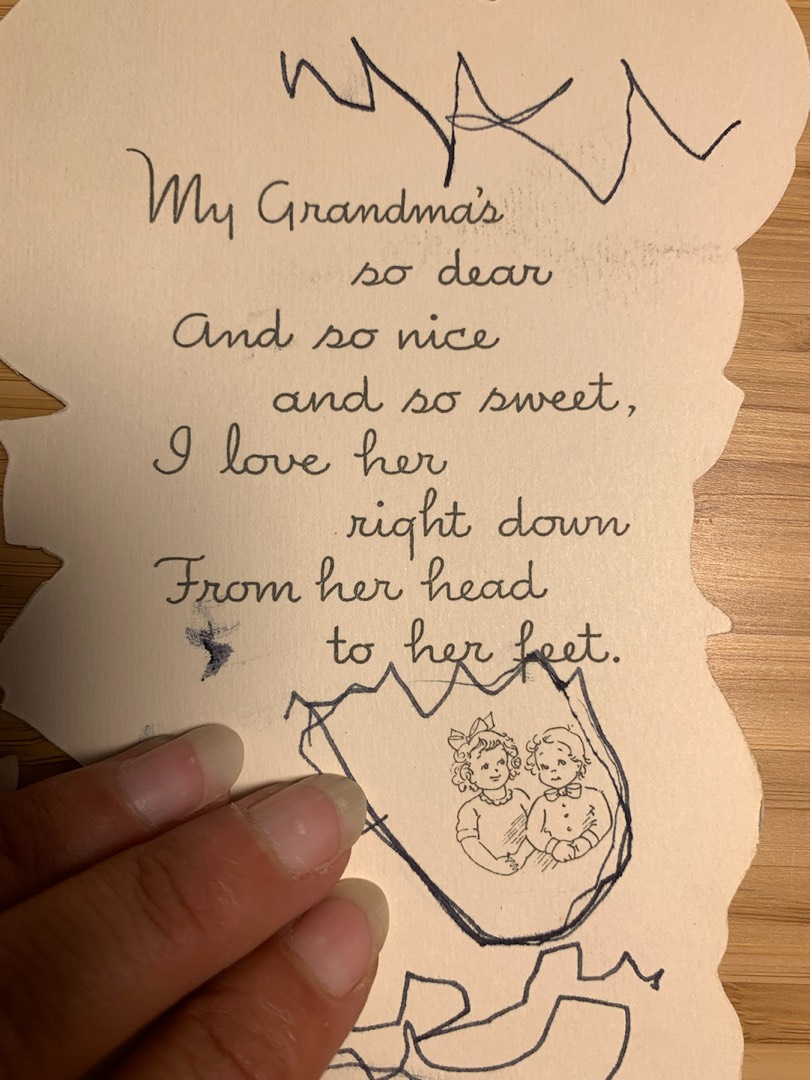 My Grandma's
so dear
And so nice
and so sweet,
I love her
right down
From her head
to her feet.